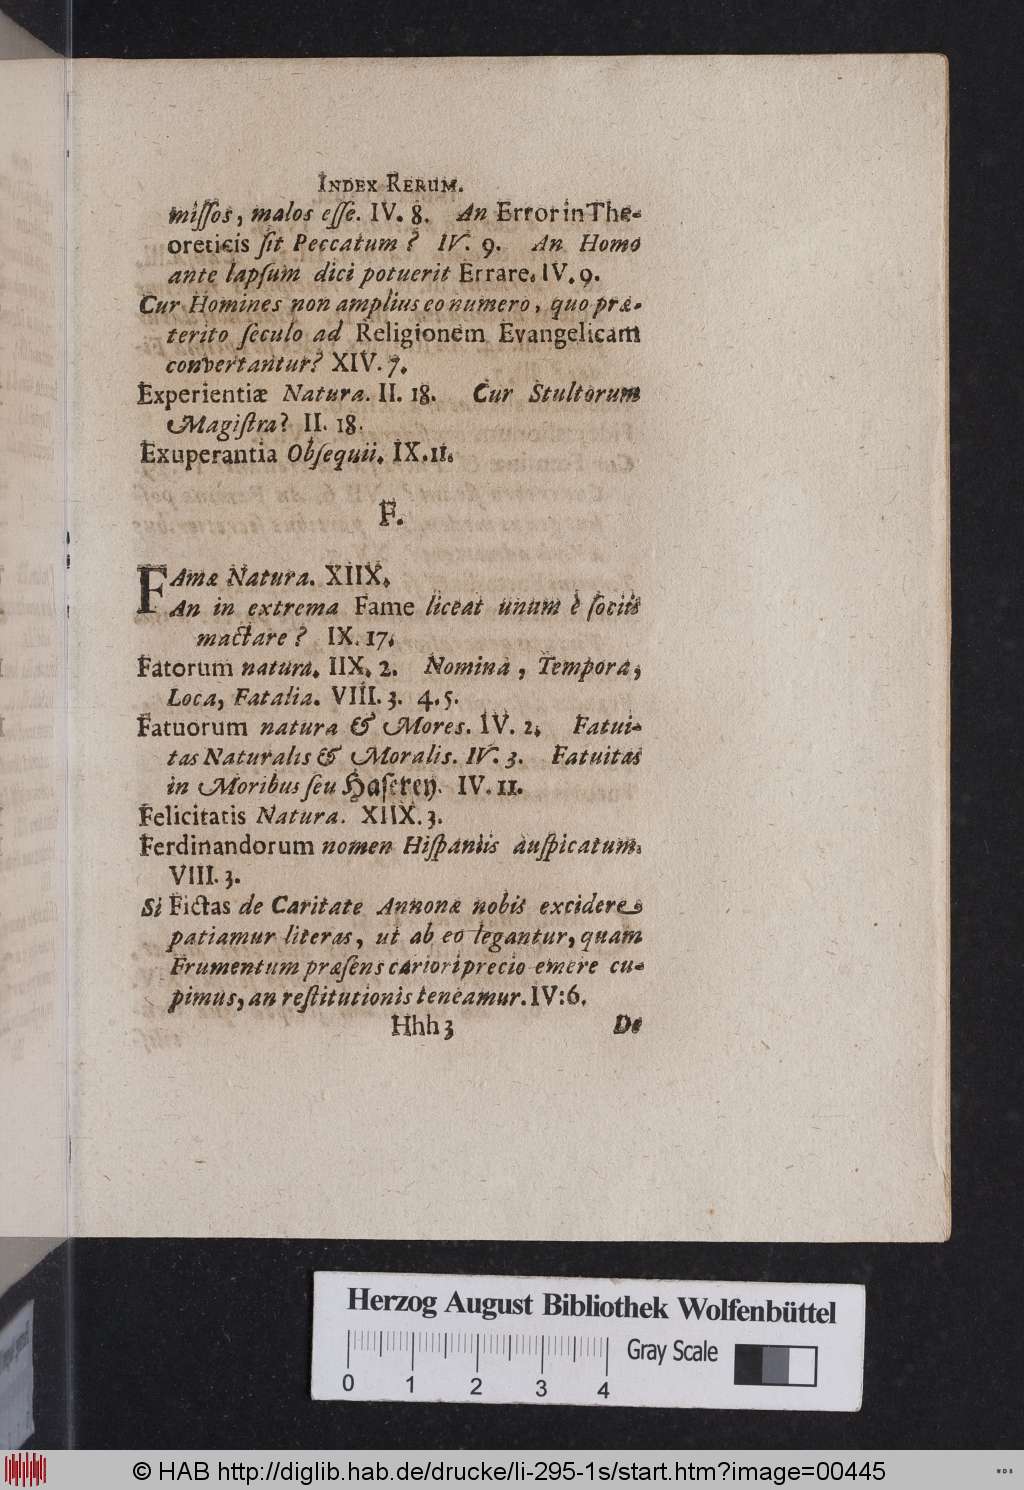 INDEX RERUM.
miſſos, malos eſſe. IV. 8. An Error in The-
oreticis ſit Peccatum? IV. 9. An Homo
ante lapſum dici potuerit Errare. IV. 9.
Cur Homines non amplius eo numero, quo præ-
terito ſeculo ad Religionem Evangelicam
convertantur? XIV. 7.
Experientiæ Natura. II. 18. Cur Stultorum
Magiſtra? II. 18.
Exuperantia Obſequii. IX. 11.
F.
FAmæ Natura. XIIX.
An in extrema Fame liceat unum è ſociis
mactare? IX. 17.
Fatorum natura. IIX. 2. Nomina, Tempora,
Loca, Fatalia. VIII. 3. 4. 5.
Fatuorum natura & Mores. IV. 2. Fatui-
tas Naturalis & Moralis. IV. 3. Fatuitas
in Moribus ſeu Haſerey. IV. 11.
Felicitatis Natura. XIIX. 3.
Ferdinandorum nomen Hiſpaniis auſpicatum.
VIII. 3.
Si Fictas de Caritate Annonæ nobis excidere
patiamur literas, ut ab eo legantur, quam
Frumentum præſens cariori precio emere cu-
pimus, an reſtitutionis teneamur. IV: 6.
Hhh 3 De
Herzog August Bibliothek Wolfenbüttel
Gray Scale
0 1 2 3 4
© HAB http://diglib.hab.de/drucke/li-295-1s/start.htm?image=00445